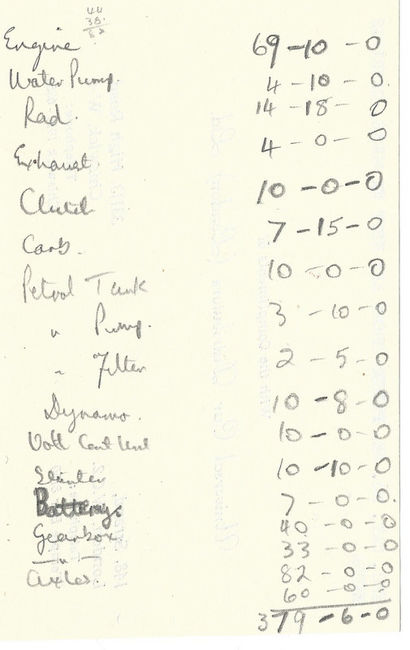 44
38.
82
Engine 69-10-0
Water Pump. 4-10-0
Rad. 14-18-0
Exhaust. 4-0-0
Clutch 10-0-0
Carb. 7-15-0
Petrol Tank 10-0-0
" Pump. 3-10-0
" Filter 2-5-0
Dynamo. 10-8-0
Volt Cont Unit 10-0-0
Starter 10-10-0
Battery. 7-0-0
Gearbox 40-0-0
-"- 33-0-0
Axles 82-0-0
60-0-0
379-6-0